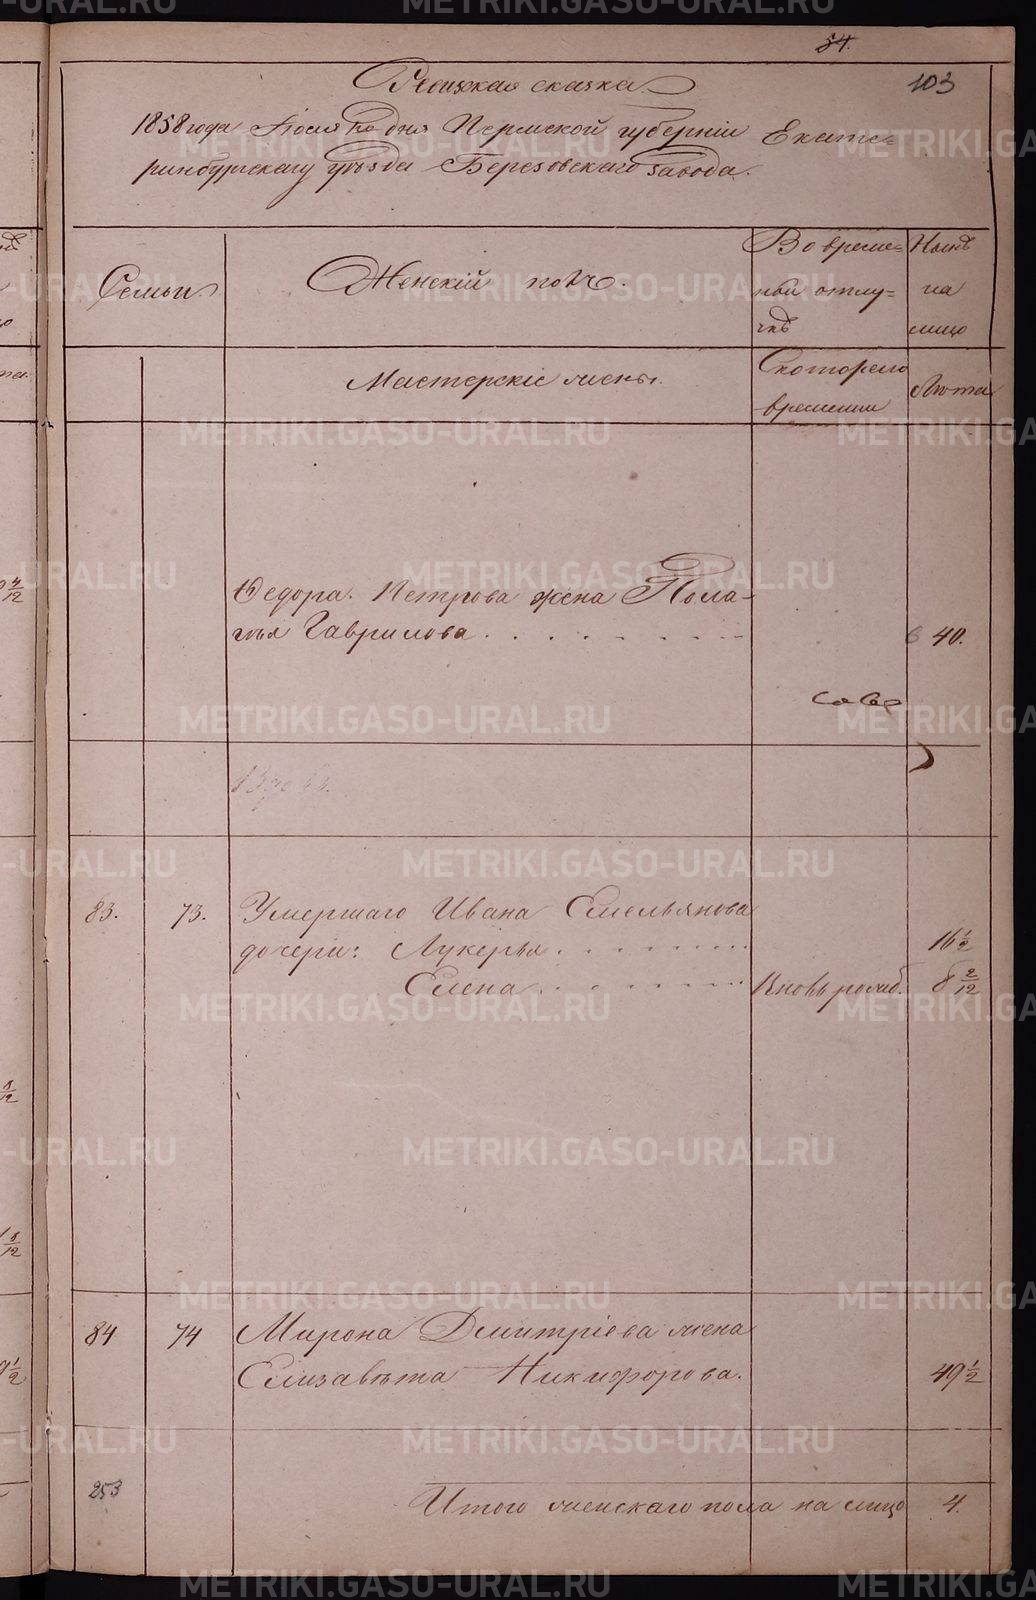 54.
103
Ревизская сказка
1858 года Июля 1го дня Пермской губерніи Екате=
ринбургскаго уѣзда Березовскаго завода.
Семьи.
Женскій полъ.
Во време=
нной отлу=
чкѣ
Нынѣ
на
лицо
Мастерскіе жены.
Съ котораго
времени
Лѣта
Федора Петрова жена Пола-
гѣя Гаврилова
40.
83.
73.
Умершаго Ивана Емельянова
дочери: Лукерья
16 1/2
Елена
Вновь рожд.
8 2/12
84
74
Мирона Дмитріева жена
Елизавѣта Никифорова.
49 1/2
253
Итого женскаго пола на лицо
4.
METRIKI.GASO-URAL.RU